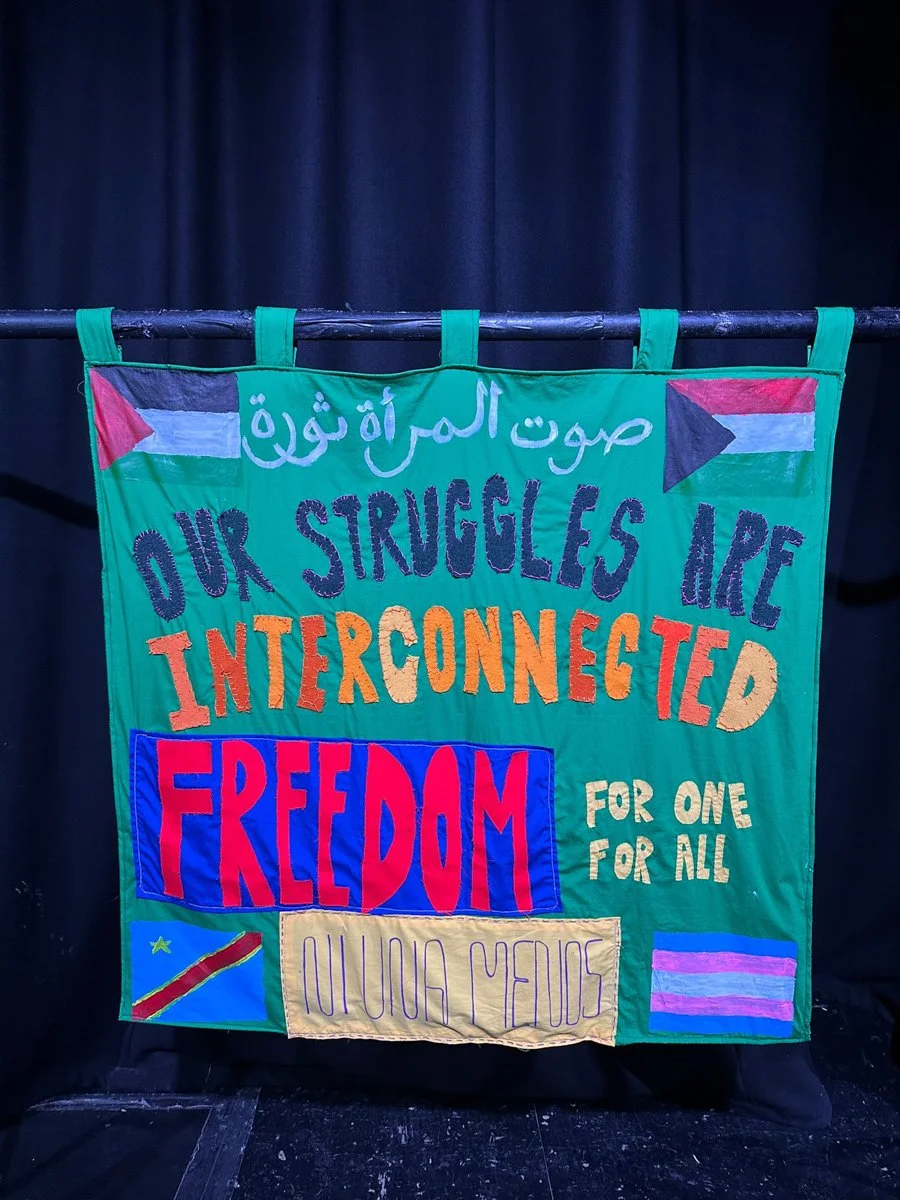 صوت المرأة ثورة
OUR STRUGGLES ARE
INTERCONNECTED
FREEDOM
FOR ONE
FOR ALL
NI UNA MENOS